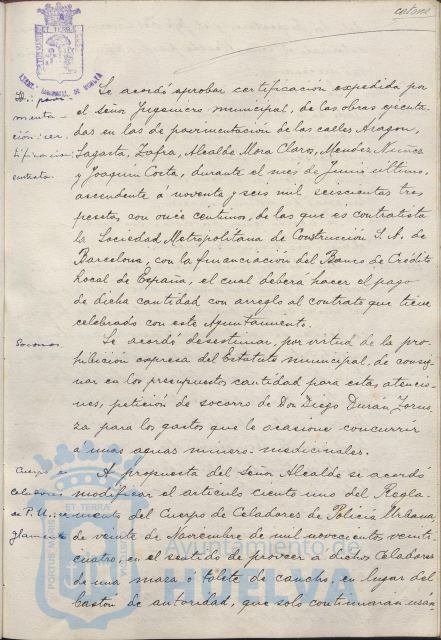 catorce
Se acordó aprobar certificación expedida por
el señor Ingeniero municipal, de las obras ejecuta-
das en las de pavimentación de las calles Aragon,
Sagasta, Zafra, Alcalde Mora Claros, Mendez Nuñez
y Joaquin Costa, durante el mes de Junio ultimo,
ascendente á noventa y seis mil seiscientas tres
pesetas, con once centimos, de las que es contratista
la Sociedad Metropolitana de Construcción S. A. de
Barcelona, con la financiación del Banco de Crédito
Local de España, el cual deberá hacer el pago
de dicha cantidad con arreglo al contrato que tiene
celebrado con este Ayuntamiento.
Socorros
Se acordó desestimar, por virtud de la pro-
hibición expresa del Estatuto municipal, de consig-
nar en los presupuestos cantidad para estas atencio-
nes, petición de socorro de Don Diego Durán
para los gastos que le ocasione concurrir
a unas aguas minero-medicinales.
Cuerpo de
Celadores
de P. U.
A propuesta del Señor Alcalde se acordó
modificar el articulo ciento uno del Regla-
mento del Cuerpo de Celadores de Policia Urbana
de veinte de Noviembre de mil novecientos veinti-
cuatro, en el sentido de proveer a dichos Celadores
de una maza o tolete de caucho, en lugar del
bastón de autoridad, que solo continuarán usán
Ayuntamiento de
HUELVA